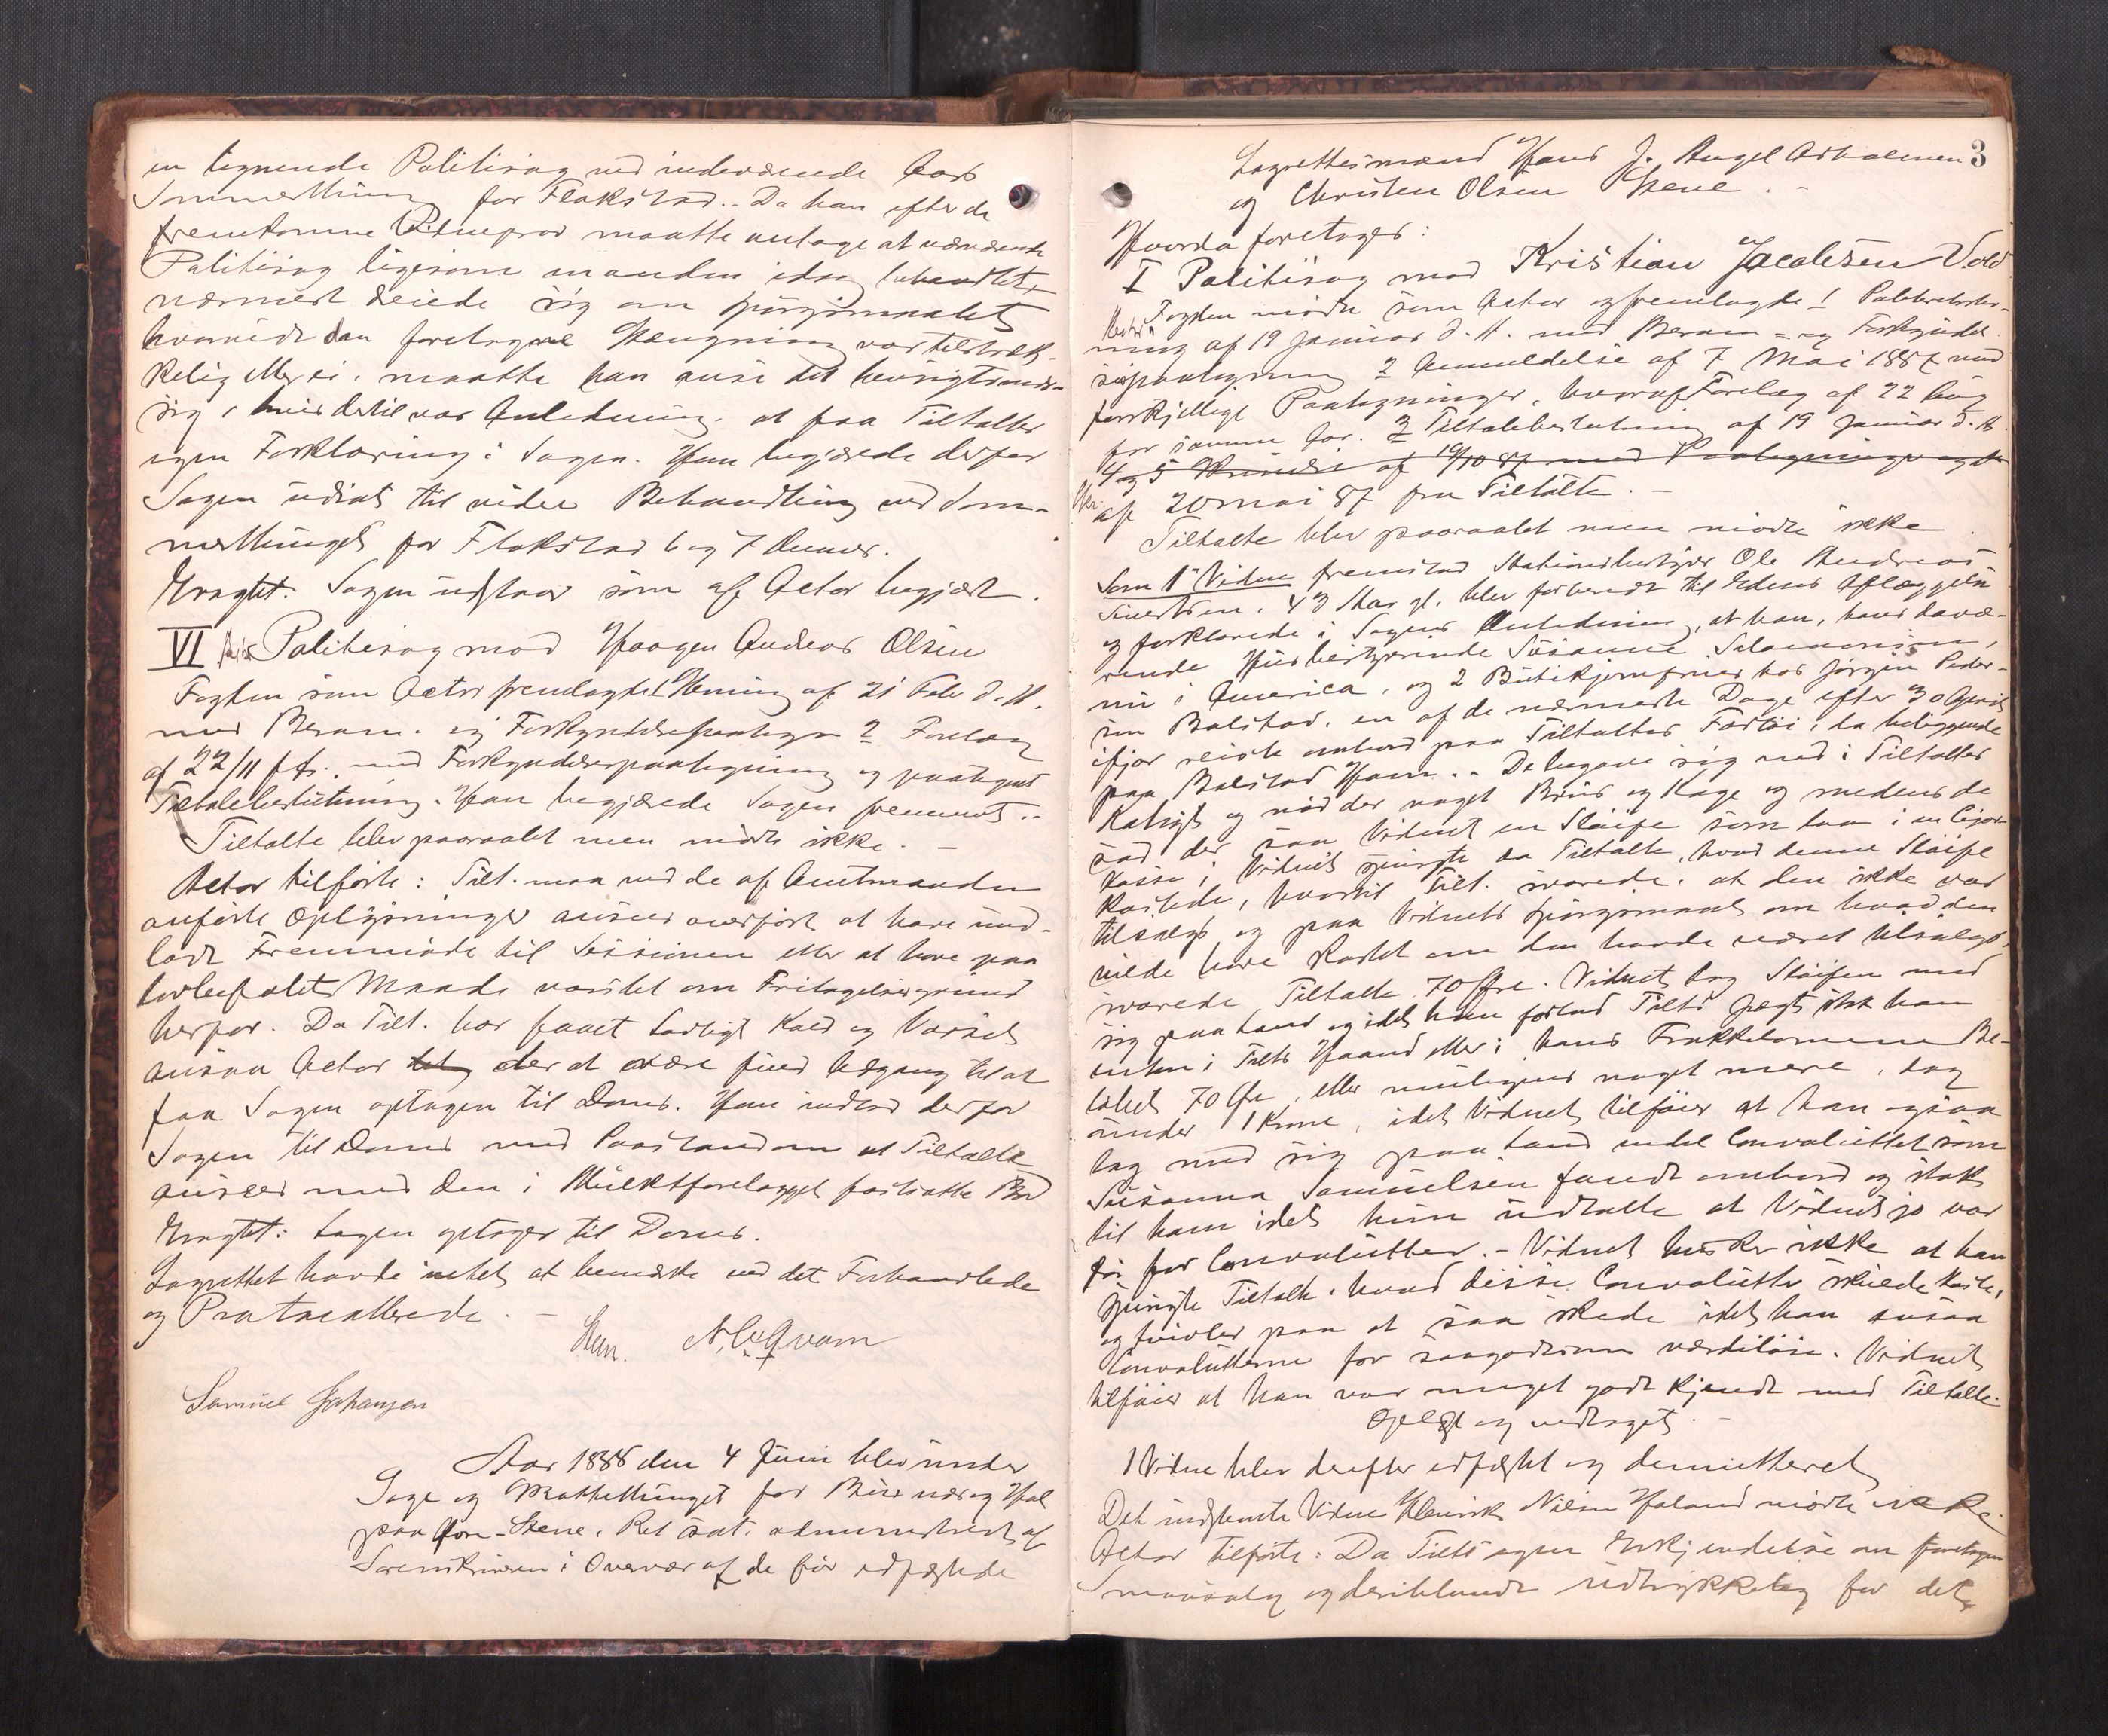 en lignende Politisag ved indeværende Aars
Sommerthing for Flakstad. Da han efter de
fremkomne Vidneprov maatte antage at nærværende
Politisag ligesom den idag behandlet
nærmest dreiede sig om Spørgsmaalet
hvorvidt den foretagne Stengning var tilstræk-
kelig eller ei, maatte han anse det hensigtsmæs-
sig, hvis dertil var Anledning, at faa Tiltaltes
egen Forklaring i Sagen. Han begjærede derfor
Sagen udsat til videre Behandling ved Som-
merthinget for Flakstad 6 og 7
Eragtet: Sagen udstaar som af Actor begjært.
VI Politisag mod Haagen Andreas Olsen
Fogden som Actor fremlagde 1 Stevning af 21 Febr d. A.
med Beram. og Forkyndelsespaategn 2 Forelæg
af 22/11 f. A. med Forkyndelsespaategning og paategnet
Tiltalebeslutning. Han begjærede Sagen fremmet.
Tiltalte blev paaraabt men mødte ikke. -
Actor tilførte: Tilt. maa ved de af Amtmanden
anførte Oplysninger ansees overført at have und-
ladt Fremmøde til Sessionen eller at have paa
lovbefalet Maade varslet om Fritagelsesgrund
herfor. Da Tilt. har faaet lovligt Kald og Varsel
ansaa Actor der at være fuld Adgang til at
faa Sagen optagen til Doms. Han indlod derfor
Sagen til Doms med Paastand om at Tiltalte
ansees med den i Mulktforelægget fastsatte Bod
Eragtet: Sagen optages til Doms.
Lagrettet havde intet at bemærke ved det Forhandlede
og Protocollerede. -
N. Qvam
Samuel Johansen
Aar 1888 den 4 Juni blev under
Sage og Skattethinget for Buxnæs og Hol
paa Gore-Stene, Ret sat, administreret af
Sorenskriveren i Overvær af de før edfæstede
3
Lagrettesmænd Hans J. Angel Arholmen
og Christen Olsen Stene. -
Hvorda foretages:
I Politisag mod Kristian Jacobsen Vold
Fogden mødte som Actor og fremlagde 1
ning af 19 Januar d. A. med Beram - og Forkyndel-
sespaategning 2 Anmeldelse af 7 Mai 1887 med
forskjellige Paategninger, hvoraf Forelæg af 22 Aug
for samme Aar. 3 Tiltalebeslutning af 19 Januar d. A.
4 og 5 af 19/10 87 med Paategninger og
af 20 mai 87 fra Tiltalte. -
Tiltalte blev paaraabt men mødte ikke
Som 1ste Vidne fremstod Stationsbestyrer Ole Andreas
Sivertsen, 43 Aar gl. blev forberedt til Edens Aflæggelse
og forklarede i Sagens Anledning, at han, hans davæ-
rende Husbestyrerinde Susanne
nu i America, og 2 Butikjomfruer hos Jørgen Peder-
sen Balstad, en af de nærmeste Dage efter 30 April
ifjor reiste ombord paa Tiltaltes Fartøi, da beliggende
paa Balstad Havn. - De begave sig ned i Tiltaltes
Kahyt og nød der noget Brus og Kage og medens de
sad der saa Vidnet en Sløife som laa i en Cigar-
kasse; Vidnet spurgte da Tiltalte, hvad denne Sløife
kostede, hvortil Tilt. svarede, at den ikke var
tilsalgs og paa Vidnets Spørgsmaal om hvad den
vilde have kostet om den havde været tilsalgs,
svarede Tiltalte 70 Øre. Vidnet tog Sløifen med
sig paa land og idet han forlod Tilts Jægt stak han
enten i Tilts Haand eller i hans Frakkelomme Be-
løbet 70 Øre, eller muligens noget mere, dog
under 1 Krone, idet Vidnet tilføier at han ogsaa
tog med sig paa land endel Convolutter som
Susanna Samuelsen fandt ombord og stak
til ham idet hun udtalte at Vidnet jo var
for Convolutter. - Vidnet husker ikke at han
spurgte Tiltalte, hvad disse Convolutter skulde koste,
og tvivler paa at saa skede idet han ansaa
Convolutterne for saagodtsom værdiløse. Vidnet
tilføier at han var meget godt kjendt med Tiltalte.
Oplæst og vedtaget. -
1 Vidne blev derefter edfæstet og demitteret
Det indstevnte Vidne Henrik Nilsen Haland mødte ikke
Actor tilførte: Da Tilts egen Erkjendelse om foretagen
Smaasalg og deriblandt udtrykkelig for det